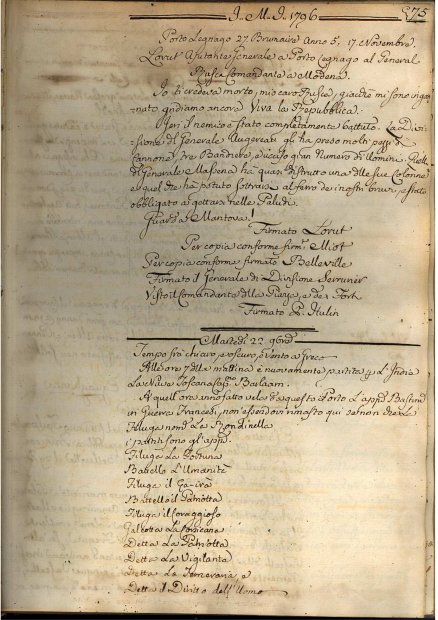 I. M. I. 1796
575
Porto Legnago 27. Brumaire Anno 5. 17. Novembre
Lorut Ajutante Generale a Porto Legnago al General
Rusca Comandante a Modena.
Io ti credeva morto, mio caro Rusca, giacchè mi sono inga-
nato gridiamo ancora Viva la Repubblica.
Jeri il nemico è stato completamente battuto. La Divi-
sione del Generale Augereau gli ha preso molti pezzi di
Cannone, tre Bandiere, e ucciso gran numero di Uomini. Quella
del Generale Massena ha quasi distrutto una delle sue Colonne
e quel che ha potuto sottrarsi al ferro dei nostri bravi, è stato
obbligato a gettarsi nelle Paludi.
Guardo a Mantova!
Firmato Lorut
Per copia conforme firm. Miot
Per copia conforme firmato Belleville
Firmato il Generale di Divisione Serrurier
Visto il Comandante della Piazza, e dei Forti
Firmato P. Hulin
Martedì 22 9bre
Tempo frà chiaro, e oscuro, e vento a greco
Alle ore 7 della mattina è nuovamente partita p. l'India
La Nave Toscana Cap. Barlaam.
A quell'ora anno fatto vela da questo Porto L'appi Bastim.
in Guerra Francesi, non essendovi rimasto qui se non che La
Filuga nom. La Rondinella
i partiti sono gli appi
Filuga La Fortuna
Battello L'Umanità
Filuga il Ça-irà
Battello il Patriotta
Filuga il Coraggioso
Galeotta La Corsicana
Detta La Patriotta
Detta La Vigilanta
Detta La Temeraria, e
Detta il Diritto dell'Uomo